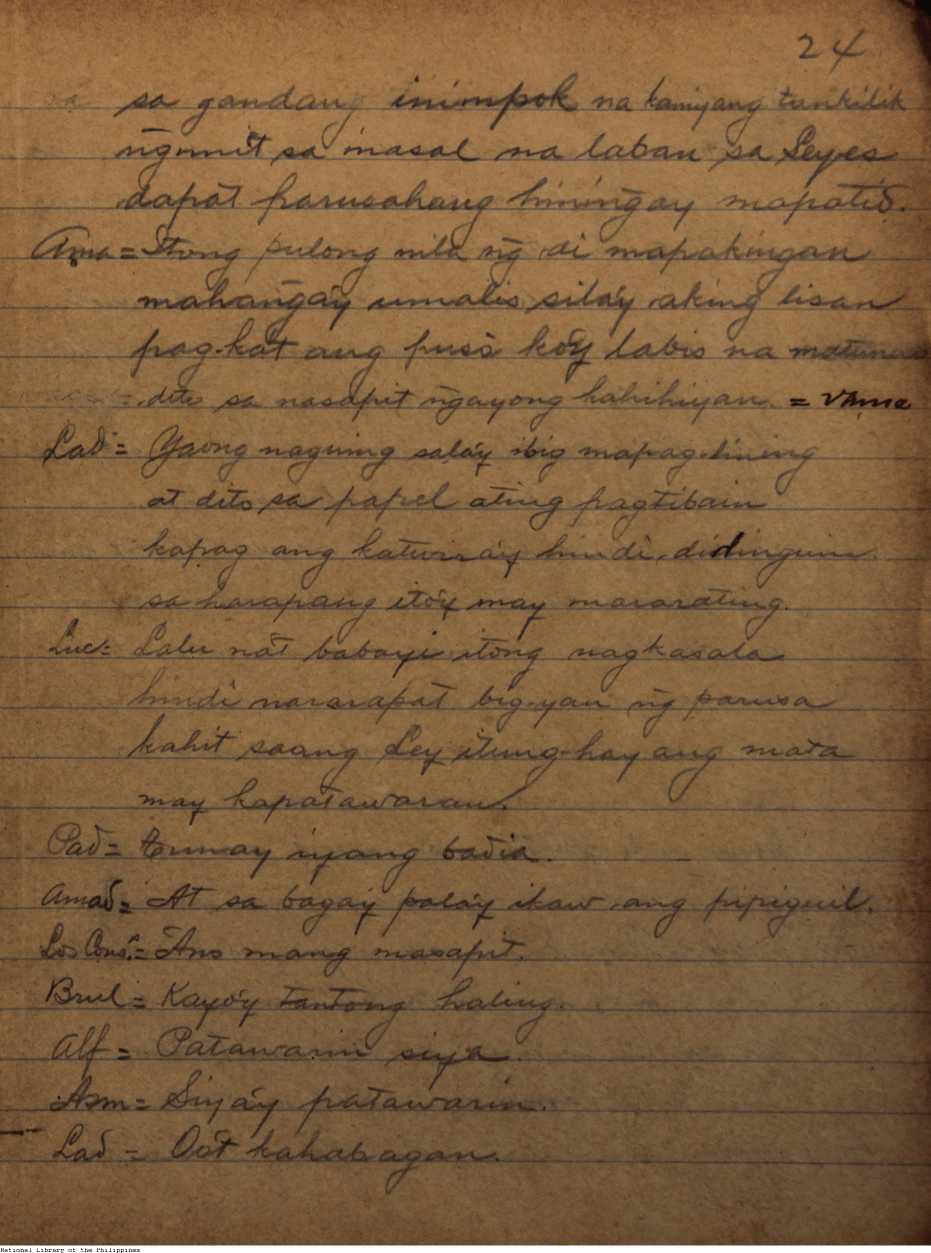 24
sa gandang inimpok na kaniyang tankilik
ng̃unit sa inasal na laban sa Leyes
dapat parusahang hining̃ay mapatid.
Ama = Itong pulong nila ng̃ di mapakingan
mahang̃ay umalis, sila'y aking lisan
pag-kat ang puso ko'y labis na
dito sa nasapit ng̃ayong kahihiyan. =
Lad = Yaong naguing sala'y ibig mapag-lining
at dito sa papel ating pagtibain
kapag ang katuira'y hindi didinguin.
sa harapang ito'y may mararating.
Luc = Lalu na't babayi itong nagkasala
hindi nararapat big-yan ng̃ parusa
kahit saang Ley itung-hay ang mata
may kapatawaran.
Pad = tunay iyang badia.
Amad = At sa bagay pala'y ikaw ang pipiguil.
Los Cons. = Ano mang masapit.
Brul = Kayo'y tantong haling.
Alf = Patawarin siya.
Asm = Siya'y patawarin.
Lad = Oo't kahabagan.
National Library of the Philippines